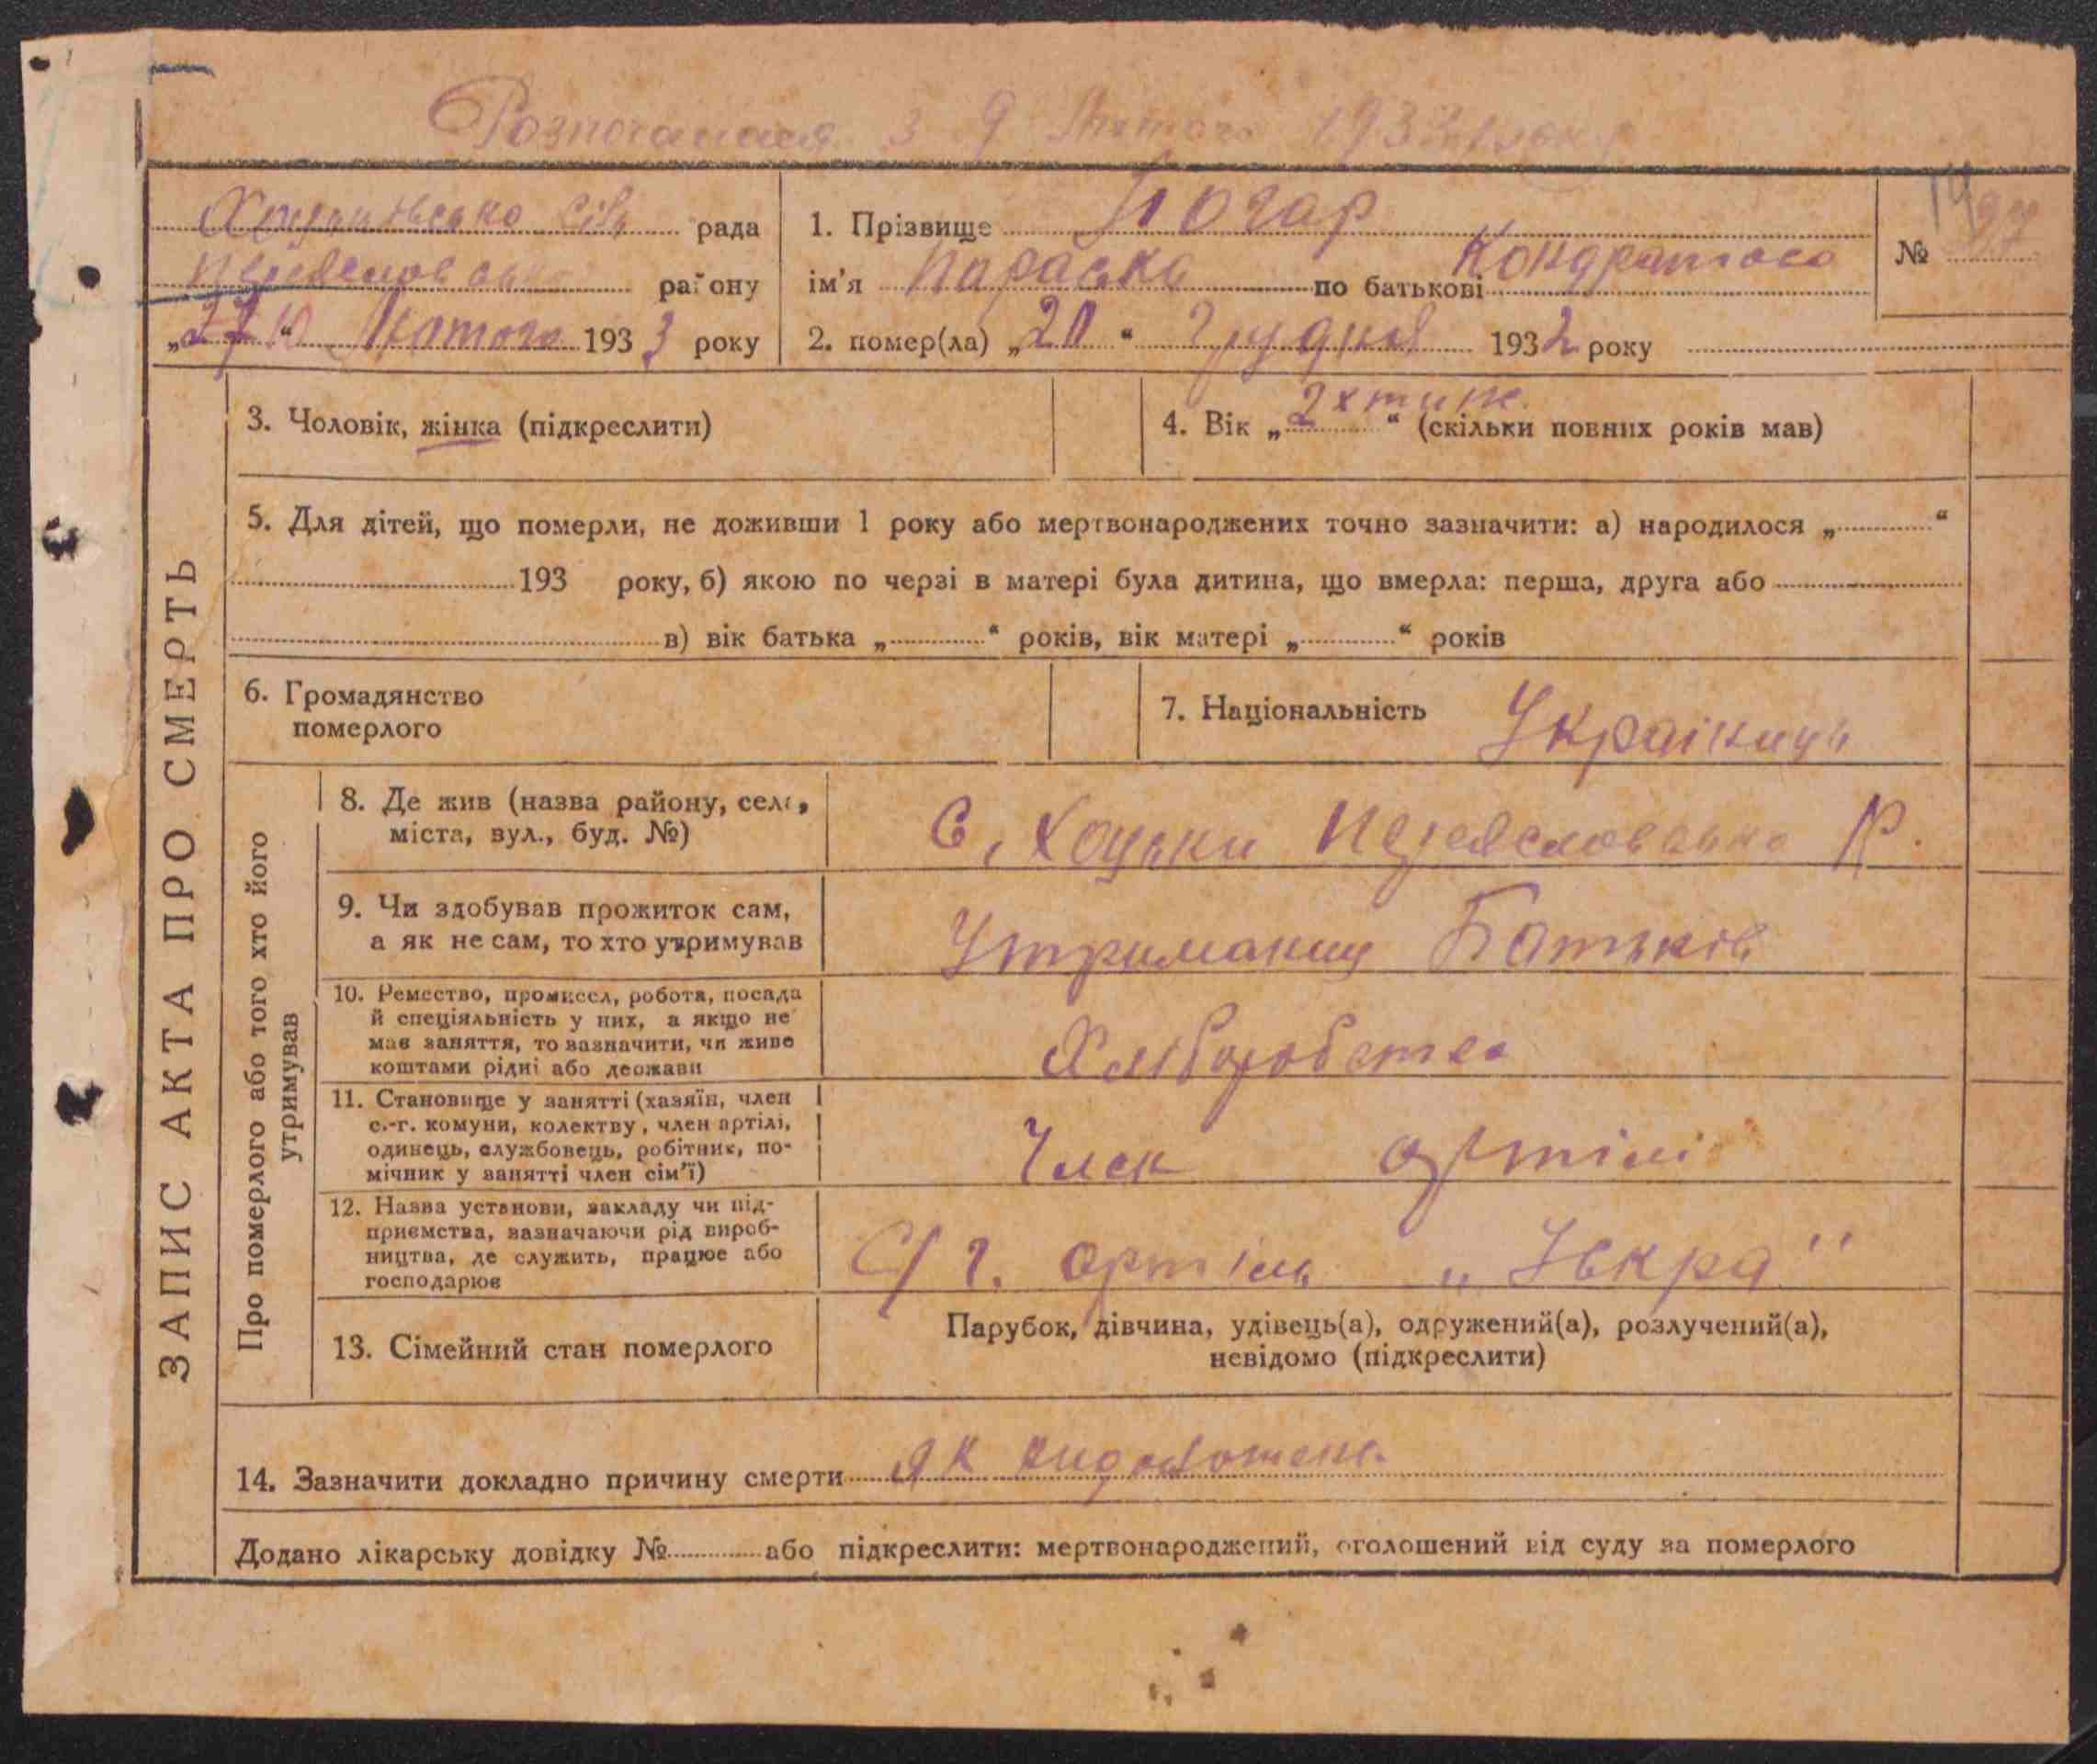 Розпочалася з 9 Лютого 1933 року
Хоцьківсько сіль рада
Переяславсько району
„27 го“ Лютого 1933 року
1. Прізвище Йогар
ім'я Параска по батькові Кондратова
2. помер(ла) „20“ Грудня 1932 року
№ 97
14
ЗАПИС АКТА ПРО СМЕРТЬ
3. Чоловік, жінка (підкреслити)
4. Вік „2х тиж.“ (скільки повних років мав)
5. Для дітей, що померли, не доживши 1 року або мертвонароджених точно зазначити: а) народилося „ “
193 року, б) якою по черзі в матері була дитина, що вмерла: перша, друга або
в) вік батька „ “ років, вік матері „ “ років
6. Громадянство
померлого
7. Національність Українць
Про померлого або того хто його
утримував
8. Де жив (назва району, села,
міста, вул., буд. №)
С. Хоцьки Переяславсько Р.
9. Чи здобував прожиток сам,
а як не сам, то хто утримував
Утриманиц Батьків
10. Ремество, промисел, робота, посада
й спеціяльність у них, а якщо не
мав заняття, то зазначити, чи живе
коштами рідні або держави
Хліборобство
11. Становище у занятті (хазяїн, член
с.-г. комуни, колектву, член артілі,
одинець, службовець, робітник, по-
мічник у занятті член сім'ї)
Член артілі
12. Назва установи, закладу чи під-
приємства, зазначаючи рід вироб-
ництва, де служить, працює або
господарює
С/г. артіль „Іскра"
13. Сімейний стан померлого
Парубок, дівчина, удівець(а), одружений(а), розлучений(а),
невідомо (підкреслити)
14. Зазначити докладно причину смерти як
Додано лікарську довідку № або підкреслити: мертвонароджений, оголошений від суду за померлого